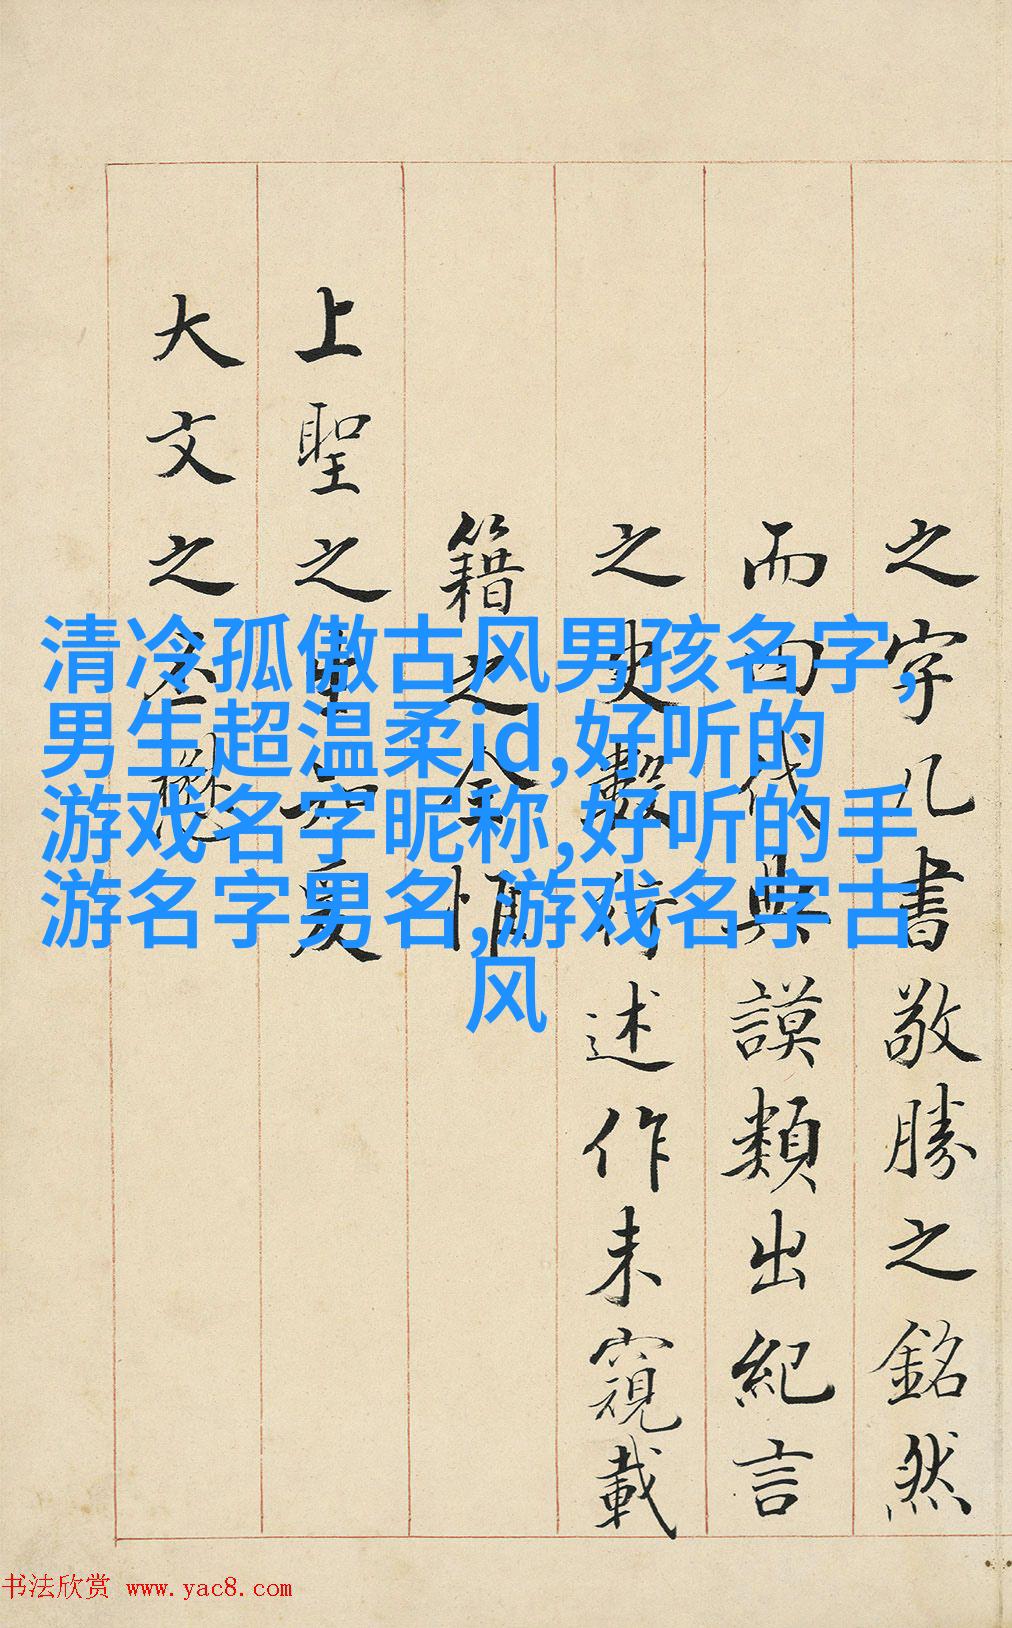 之字几書敬勝之銘然
而四代典謨類出紀言
之史數述作未窺載
籍之全惟
上聖之
大文之
清冷孤傲古风男孩名字,
男生超温柔id,好听的
游戏名字昵称,好听的手
游名字男名,游戏名字古
风
书法欣赏 www.yac8.com